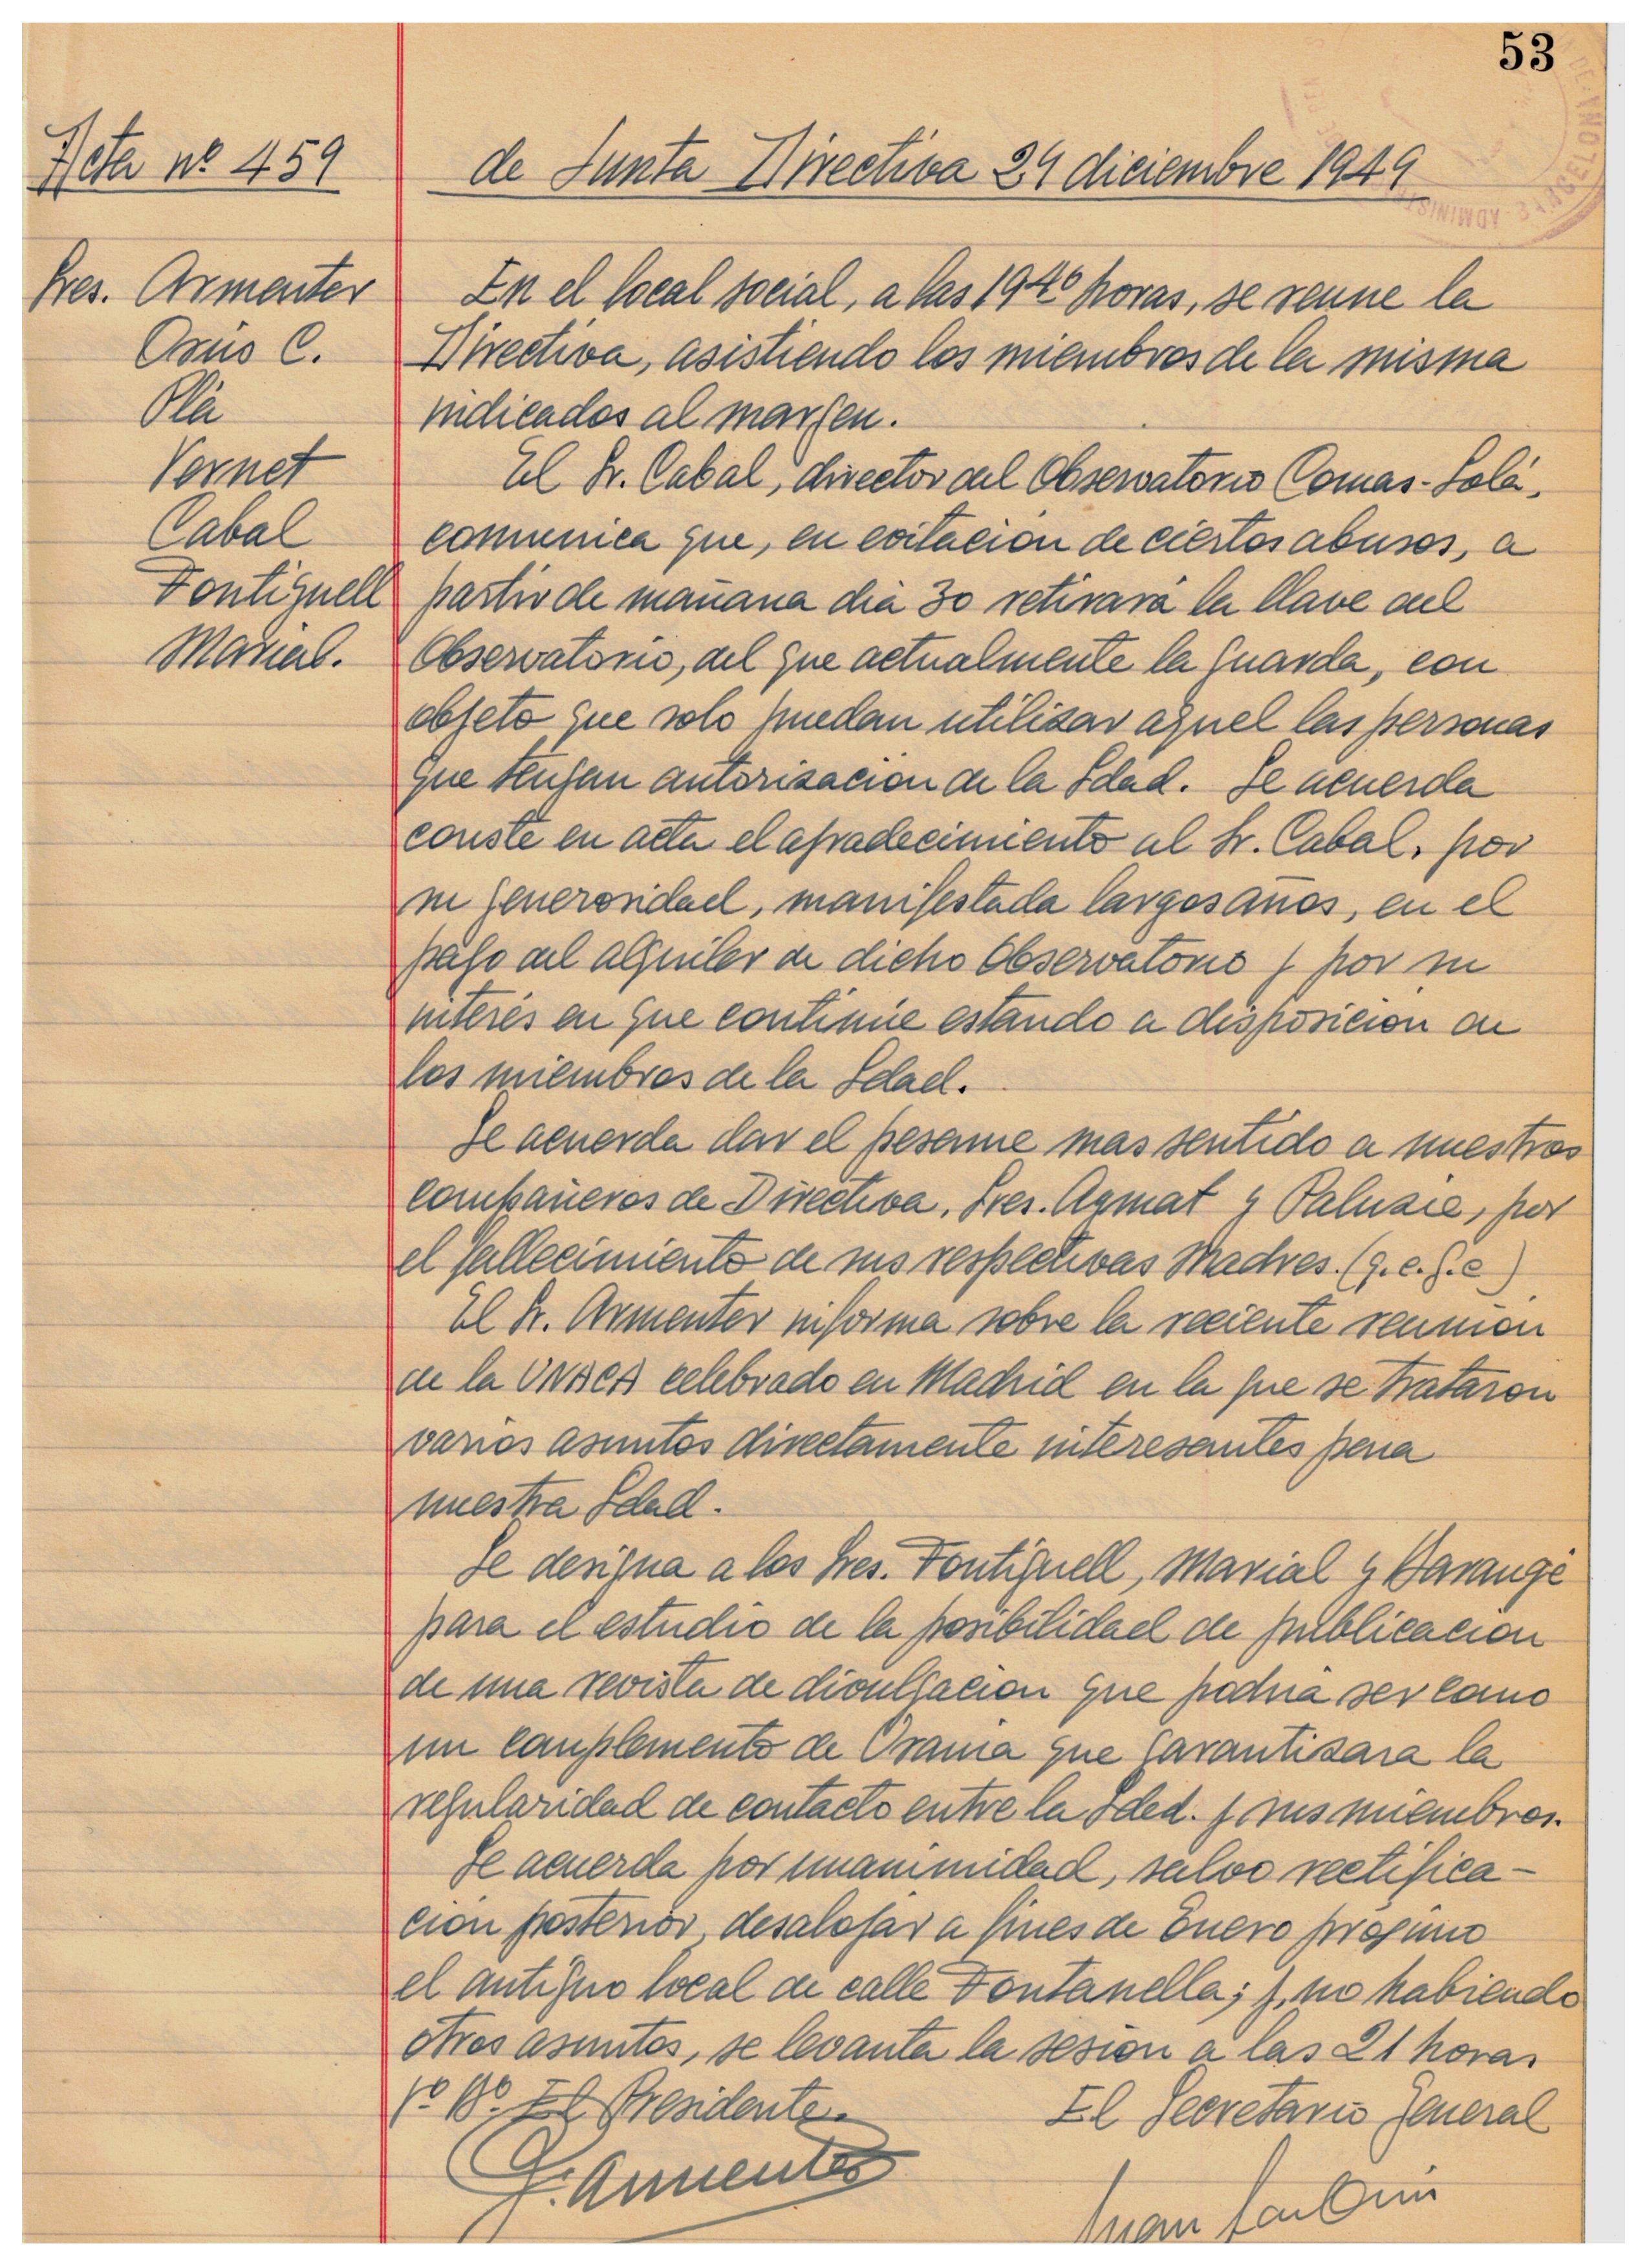 53
Acta nº 459
de Junta Directiva 29 diciembre 1949
Sres. Armenter
Orús C.
Plà
Vernet
Cabal
Fontiguell
Marial.
En el local social, a las 19⁴⁰ horas, se reune la
Directiva, asistiendo los miembros de la misma
indicados al margen.
El Sr. Cabal, director del Observatorio Comas-Solà,
comunica que, en evitacion de ciertos abusos, a
partir de mañana dia 30 retirará la llave del
Observatorio, del que actualmente la guarda, con
objeto que solo puedan utilizar aquel las personas
que tengan autorizacion de la Sdad. Se acuerda
conste en acta el agradecimiento al Sr. Cabal, por
su generosidad, manifestada largos años, en el
pago del alquiler de dicho Observatorio y por su
interés en que continúe estando a disposicion de
los miembros de la Sdad.
Se acuerda dar el pesame mas sentido a nuestros
compañeros de Directiva, Sres. Aymat y Paluzie, por
el fallecimiento de sus respectivas Madres. (q.e.g.e)
El Sr. Armenter informa sobre la reciente reunion
de la UNACA celebrado en Madrid en la que se trataron
varios asuntos directamente interesantes para
nuestra Sdad.
Se designa a los Sres. Fontiguell, Marial y Barangé
para el estudio de la posibilidad de publicacion
de una revista de divulgacion que podria ser como
un complemento de Urania que garantizara la
regularidad de contacto entre la Sdad. y sus miembros.
Se acuerda por unanimidad, salvo rectifica-
cion posterior, desalojar a fines de Enero proximo
el antiguo local de calle Fontanella; y, no habiendo
otros asuntos, se levanta la sesion a las 21 horas
Vº Bº El Presidente.
El Secretario General
J. Armenter
Juan